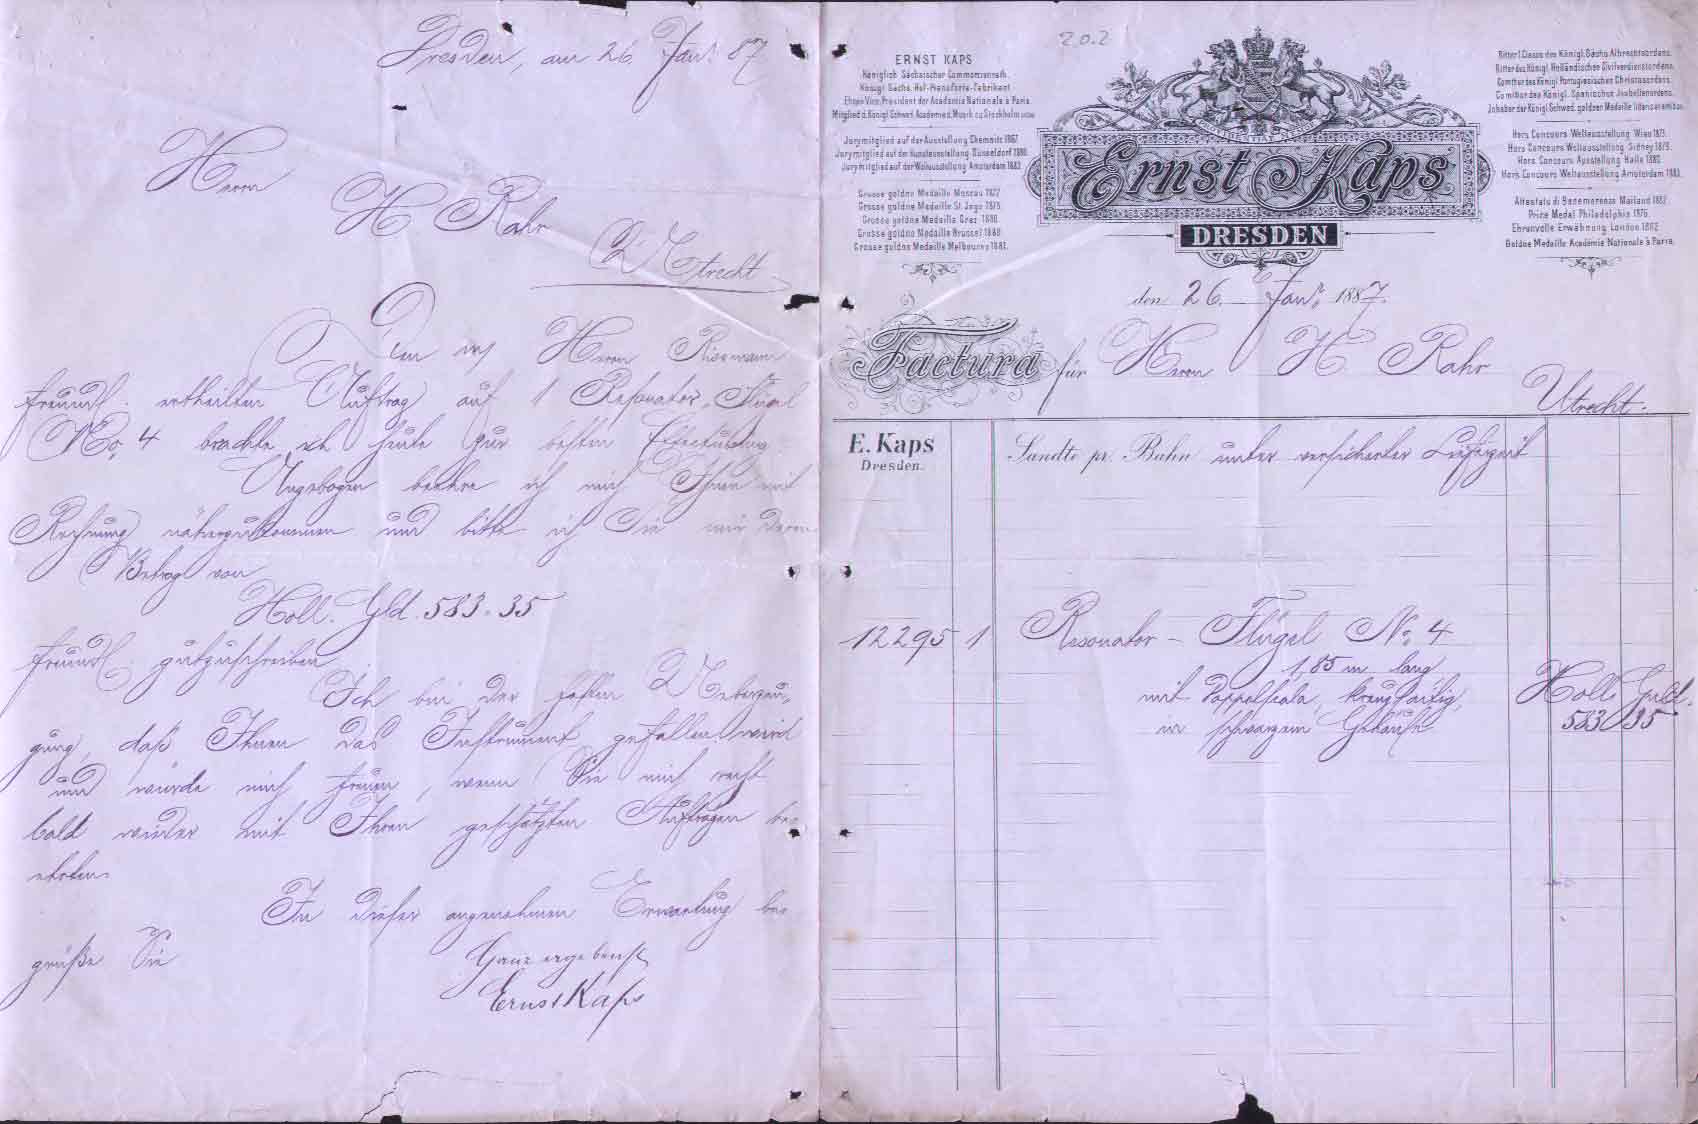 Dresden, am 26. Jan. 87
Herrn
H Rahr
Utrecht
Den mir Herrn Rissmann
freundl. ertheilten Auftrag auf 1 Resonator-Flügel
No. 4 brachte ich heute zur besten Effectuirung.
Angebogen beehre ich mich Ihnen mit
Rechnung näherzukommen und bitte ich Sie mir deren
Betrag von
Holl. Gld. 583.35
freundl. gutzuschreiben.
Ich bin der festen Ueberzeu-
gung, daß Ihnen das Instrument gefallen wird
und würde mich freuen, wenn Sie mich recht
bald wieder mit Ihren geschätzten Aufträgen be-
ehrten.
In dieser angenehmen Erwartung be-
grüße Sie
Ganz ergebenst
Ernst Kaps
202
ERNST KAPS
Königlich Sächsischer Commerzienrath.
Königl Sächs. Hof-Pianoforte-Fabrikant
Ehren Vice Präsident der Academia Nationale à Paris.
Mitglied d. Königl Schwed. Academie d. Musik zu Stockholm
Jurymitglied auf der Ausstellung Chemnitz 1867.
Jurymitglied auf der Kunstausstellung Düsseldorf 1880.
Jurymitglied auf der Weltausstellung Amsterdam 1883.
Grosse goldne Medaille Moscau 1872
Grosse goldne Medaille St. Jago 1875.
Grosse goldne Medaille Graz 1880.
Grosse goldne Medaille Brüssel 1880.
Grosse goldne Medaille Melbourne 1881.
Ernst Kaps
DRESDEN
Ritter I. Classe des Königl. Sächs. Albrechtsordens.
Ritter des Königl. Holländischen Civilverdienstordens.
Comthur des Königl. Portugiesischen Christusordens.
Comthur des Königl. Spanischen Isabellenordens.
Inhaber der Königl Schwed. goldnen Medaille litteris et artibus.
Hors Concours Weltausstellung Wien 1873.
Hors Concours Weltausstellung Sidney 1879.
Hors Concours Ausstellung Halle 1880.
Hors Concours Weltausstellung Amsterdam 1883.
Attestato di Benemerenza Mailand 1882.
Prize Medal Philadelphia 1876.
Ehrenvolle Erwähnung London 1862.
Goldne Medaille Académie Nationale à Paris.
den 26. Jan. 1887.
Factura für Herrn H. Rahr
Utrecht.
E. Kaps
Dresden.
Sandte pr. Bahn unter versicherter Lieferzeit
12295 1 Resonator-Flügel No. 4
1,85 m lang
mit Doppelscala, kreuzsaitig,
in schwarzem Gehäuse
Holl. Guld.
583 35